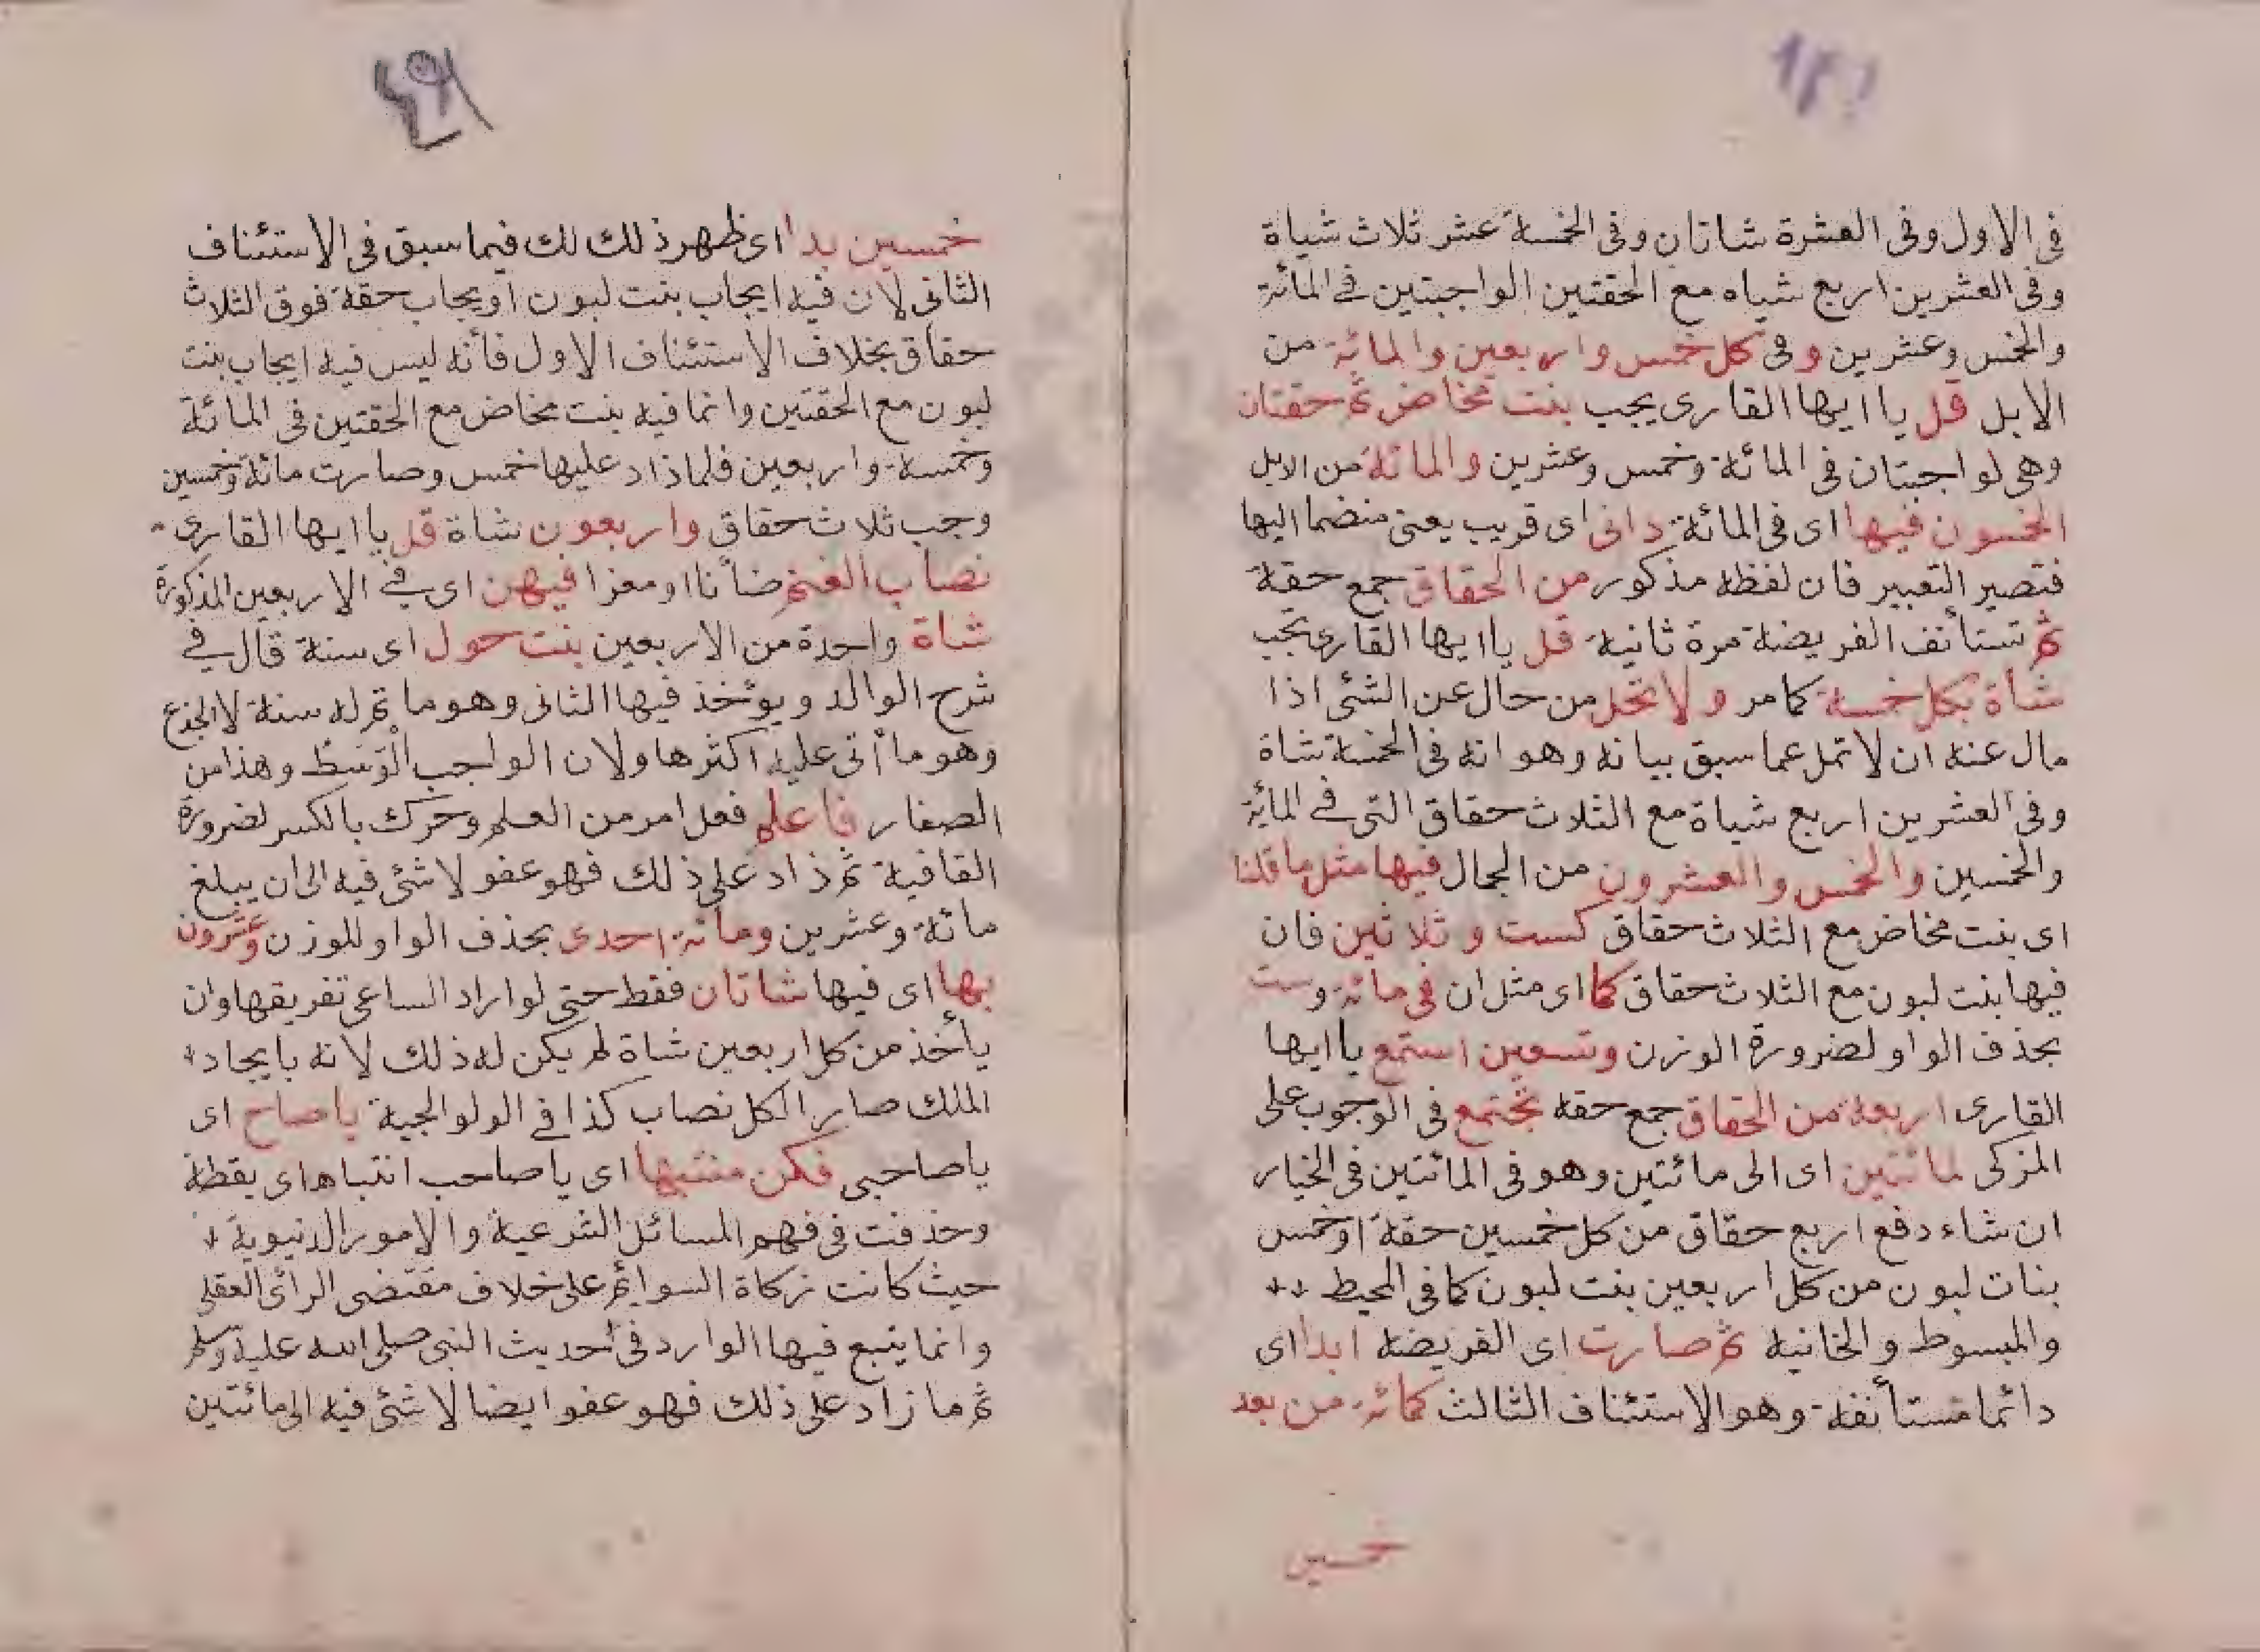 فى الاول وفى العشرة شاتان وفى الخمسة عشر ثلاث شياة
وفى العشرين اربع شياه مع الحقتين الواجبتين فى المائة
والخمس وعشرين وفى كل خمس واربعين والمائة من
الابل قل يا ايها القارى يجب بنت مخاض ثم حقتان
وهى لواجبتان فى المائة وخمس وعشرين والمائة من الابل
الخمسون فيها اى فى المائة دانى اى قريب يعنى منضما اليها
فتصير التعبير فان لفظه مذكور من الحقاق جمع حقة
ثم تستأنف الفريضة مرة ثانية قل يا ايها القارى تجب
شاة بكل خمسة كما مر ولا تحل من حال عن الشئ اذا
مال عنه ان لا تمل عما سبق بيانه وهو انه فى الخمسة شاة
وفى العشرين اربع شياة مع الثلاث حقاق التى فى المائة
والخمسين والخمس والعشرون من الجمال فيها مثل ما قلنا
اى بنت مخاض مع الثلاث حقاق كست وثلاثين فان
فيها بنت لبون مع الثلاث حقاق كما اى مثل ان فى مائة وست
بحذف الواو لضرورة الوزن وتسعين استمع يا ايها
القارى اربعة من الحقاق جمع حقة تجتمع فى الوجوب على
المزكى لمائتين اى الى مائتين وهو فى المائتين فى الخيار
ان شاء دفع اربع حقاق من كل خمسين حقة او خمس
بنات لبون من كل اربعين بنت لبون كما فى المحيط
والمبسوط والخانية ثم صارت اى الفريضة ابدا اى
دائما مستأنفة وهو الاستئناف الثالث كمائة من بعد
خمسين
خمسين بدا اى ظهر ذلك لك فيما سبق فى الاستئناف
الثانى لان فيه ايجاب بنت لبون اويجاب حقة فوق الثلاث
حقاق بخلاف الاستئناف الاول فأنه ليس فيه ايجاب بنت
لبون مع الحقتين وانما فيه بنت مخاض مع الحقتين فى المائة
وخمسة واربعين فلما ذاد عليها خمس وصارت مائة وخمسين
وجب ثلاث حقاق واربعون شاة قل يا ايها القارى
نصاب الغنم ضأنا او معزا فيهن اى فى الاربعين المذكورة
شاة واحدة من الاربعين بنت حول اى سنة قال فى
شرح الوالد ويوئخذ فيها الثانى وهو ما تم له سنة لا الجذع
وهو ما أتى عليه اكثرها ولان الواجب الوسط وهذا من
الصغار فاعلم فعل امر من العلم وحرك بالكسر لضرورة
القافية ثم ذاد على ذلك فهو عفو لا شئ فيه الى ان يبلغ
مائة وعشرين ومائة احدى بحذف الواو للوزن وعشرون
بها اى فيها شاتان فقط حتى لو اراد الساعى تفريقها وان
يأخذ من كل اربعين شاة لم يكن له ذلك لانه بايجاد
الملك صار الكل نصاب كذا فى الولوالجية يا صاح اى
يا صاحبى فكن منتبها اى يا صاحب انتباه اى يقطة
وحذفت فى فهم المسائل الشرعية والامور الدنيوية
حيث كانت زكاة السوائم على خلاف مقتضى الرائ العقلى
وانما يتبع فيها الوارد فى احديث النبى صلى الله عليه وسلم
ثم ما زاد على ذلك فهو عفو ايضا لا شئ فيه الى مائتين